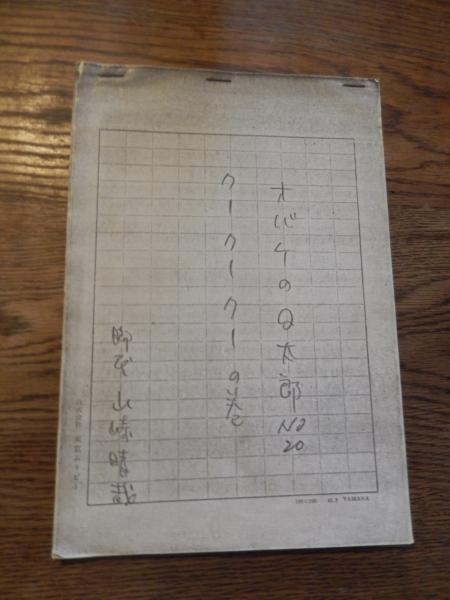 オバケのQ太郎 NO 20
クークークーの巻
山崎晴哉
YAMANA